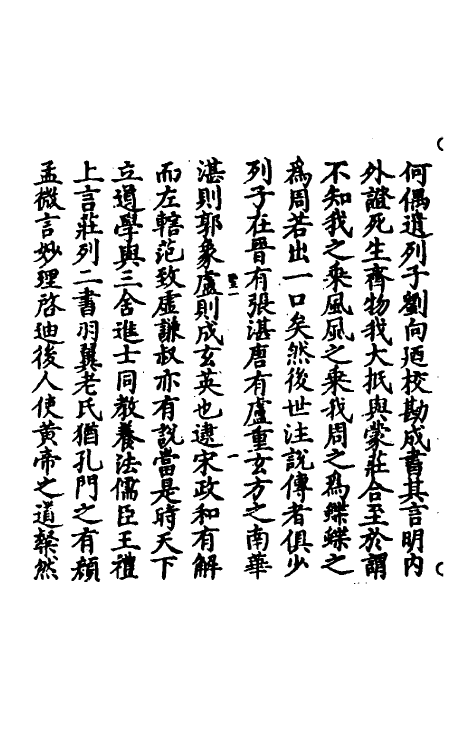 何偶遺列子劉向迺校勘成書其言明内
外證死生齊物我大抵與蒙莊合至於謂
不知我之乘風風之乘我周之爲蝶蝶之
爲周若出一口矣然後世注說傳者俱少
列子在晋有張湛唐有盧重玄方之南華
湛則郭象盧則成玄英也逮宋政和有解
而左轄范致虚謙叔亦有說當是時天下
立道學與三舍進士同教養法儒臣王禮
上言莊列二書羽翼老氏猶孔門之有顔
孟微言妙理啓迪後人使黄帝之道粲然